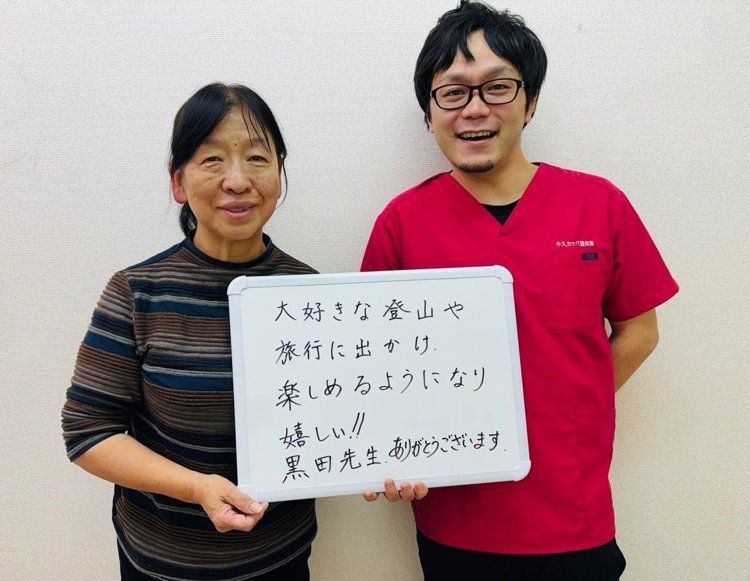 牛久カッパ整体院
大好きな登山や
旅行に出かけ.
楽しめるようになり
嬉しい!!
黒田先生.ありがとうございます.